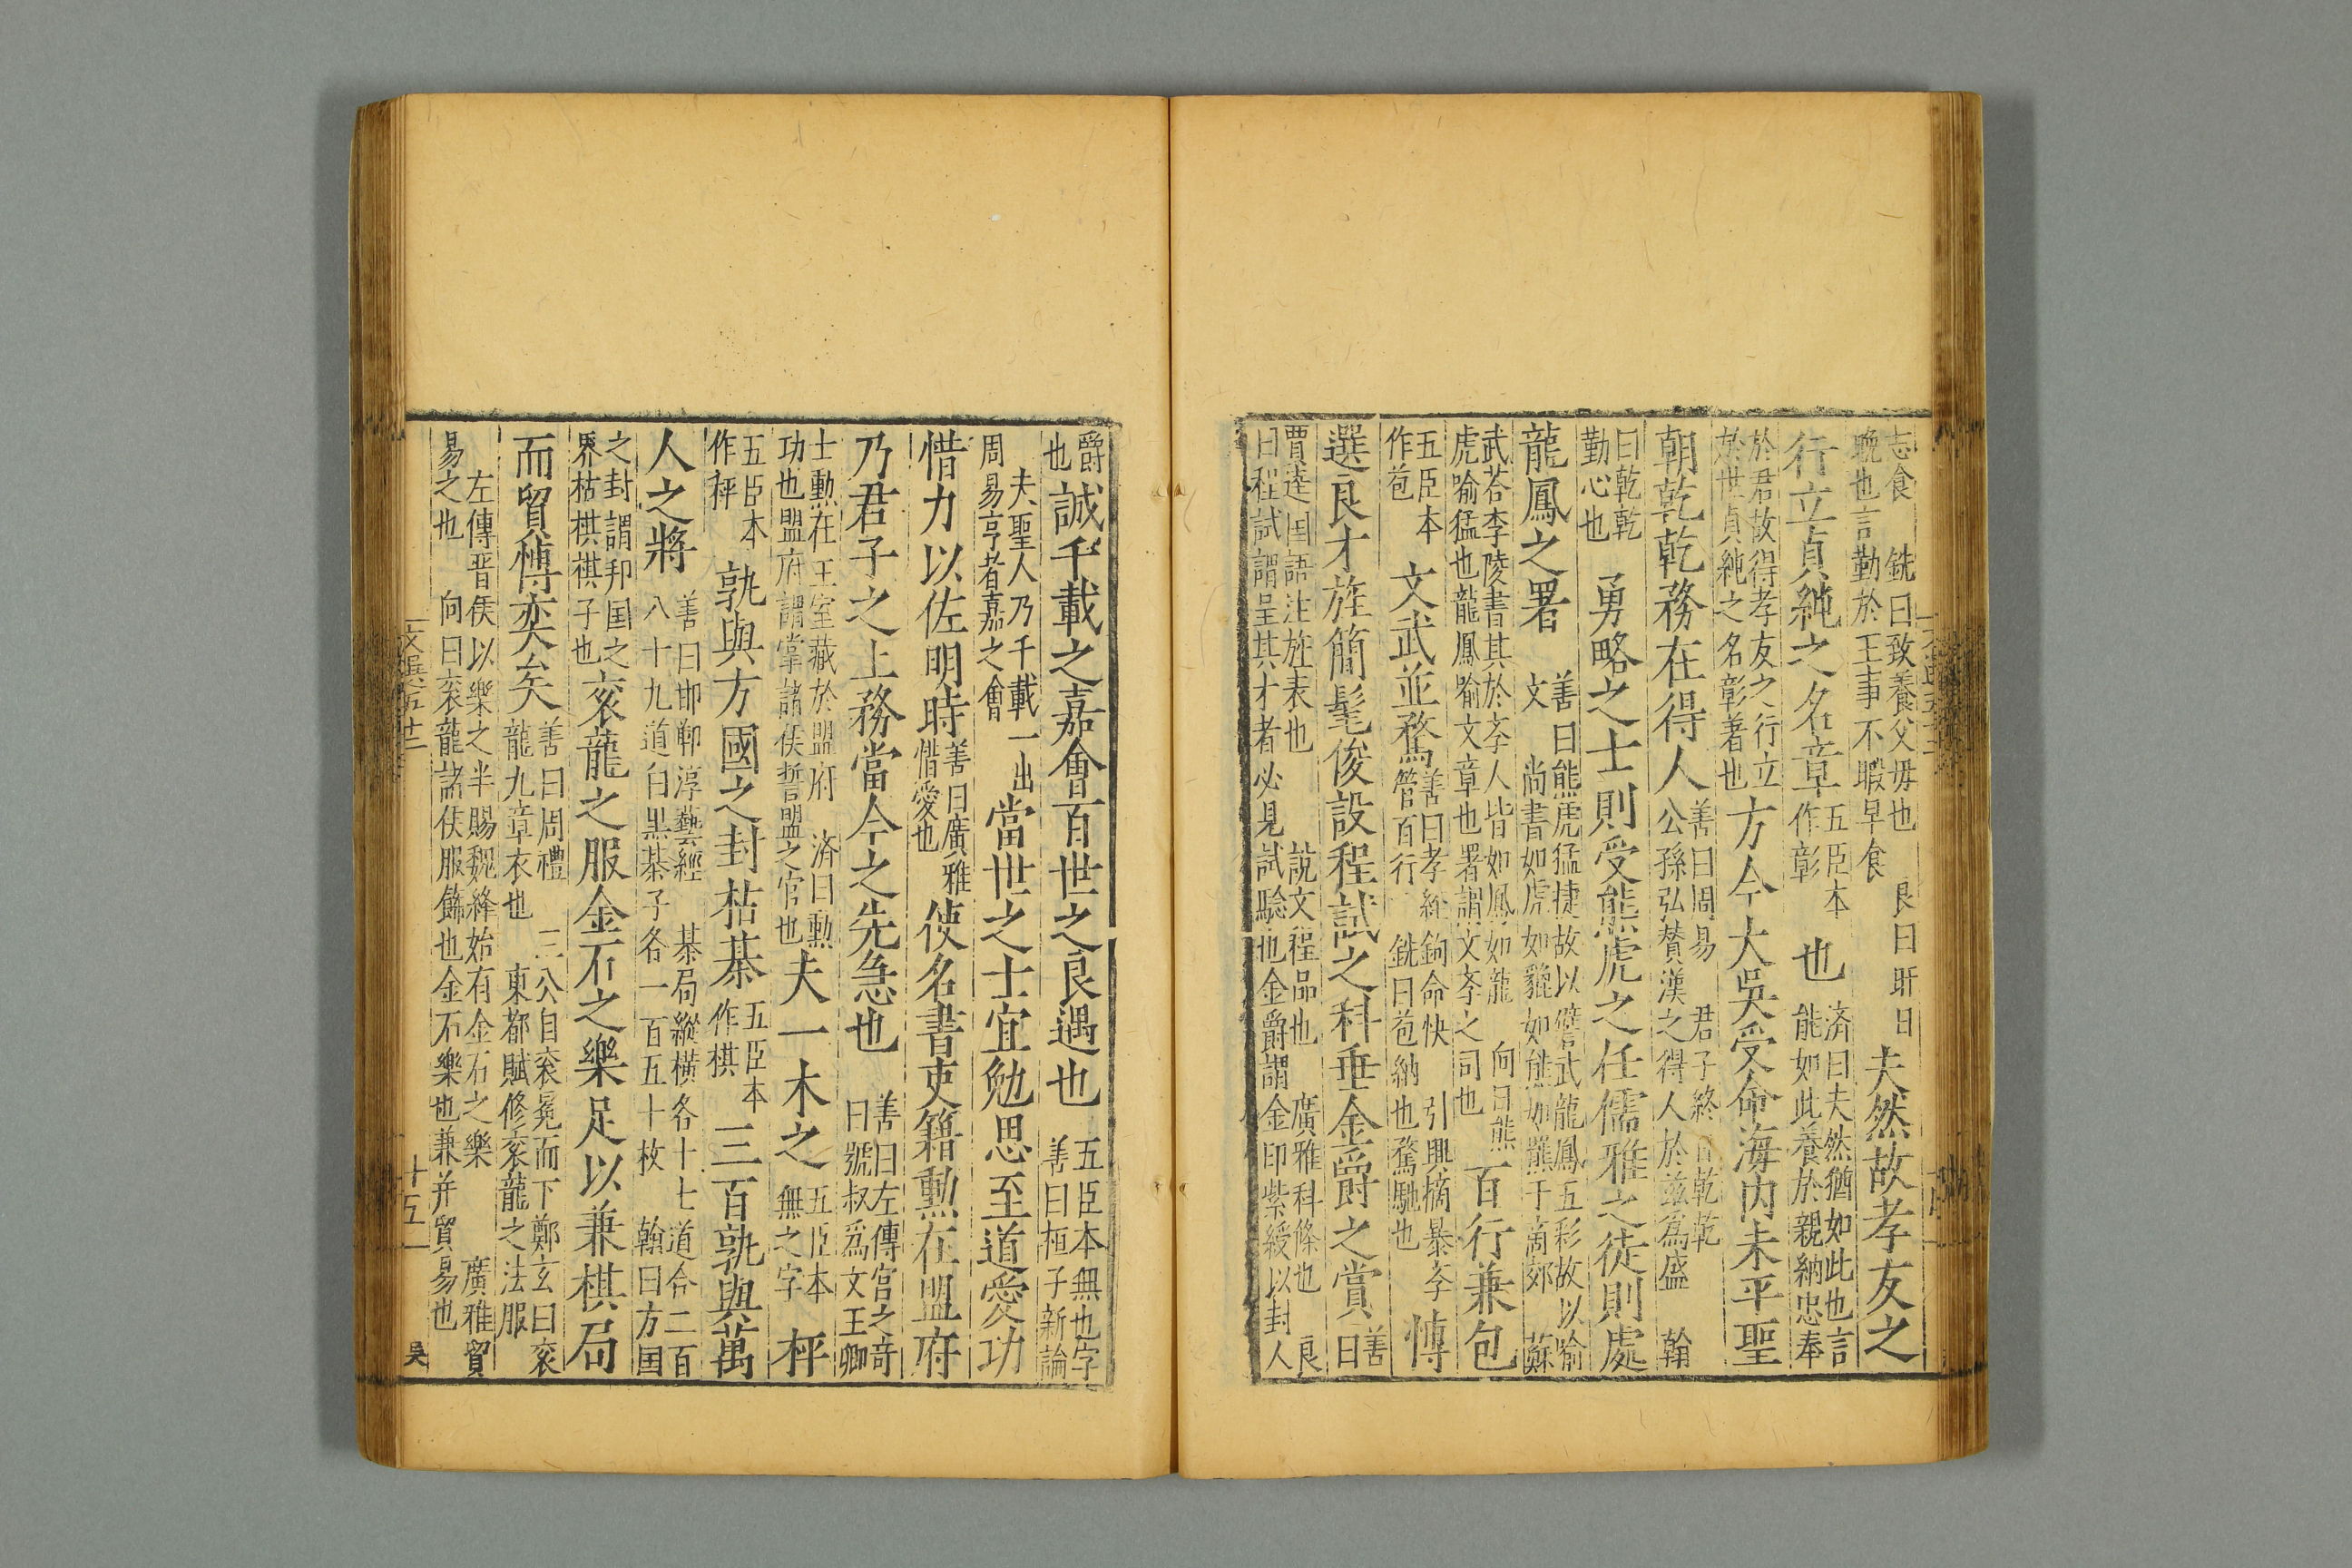 志食　銑曰致養父母也　良曰旰日
晩也言勤於王事不暇早食
夫然故孝友之
行立貞純之名章
五臣本
作彰
也
濟曰夫然猶如此也言
能如此養於親納忠奉
於君故得孝友之行立
於世貞純之名彰著也
方今大吳受命海内未平聖
朝乾乾務在得人
善曰周易　君子終日乾乾
公孫弘賛漢之得人於兹爲盛　翰
曰乾乾
勤心也
勇略之士則受熊虎之任儒雅之徒則處
龍鳳之署
善曰熊虎猛捷故以譬武龍鳳五彩故以喻
文　尚書如虎如貔如熊如羆于商郊　蘇
武荅李陵書其於斈人皆如鳳如龍　向曰熊
虎喻猛也龍鳳喻文章也署謂文斈之司也
百行兼包
五臣本
作苞
文武並騖
善曰孝經鉤命决　引興摘暴斈
管百行　銑曰苞納也騖馳也
愽
選良才旌簡髦俊設程試之科垂金爵之賞
善
曰
賈逵囯語注旌表也　說文程品也　廣雅科條也　良
曰程試謂呈其才者必見試驗也金爵謂金印紫綬以封人
爵
也
誠千載之嘉會百世之良遇也
五臣本無也字
善曰桓子新論
夫聖人乃千載一出
周易亨者嘉之會
當世之士宜勉思至道愛功
惜力以佐明時
善曰廣雅
惜愛也
使名書吏籍勲在盟府
乃君子之上務當今之先急也
善曰左傳宫之奇
曰虢叔爲文王卿
士勲在王室藏於盟府　濟曰勲
功也盟府謂掌諸侯誓盟之官也
夫一木之
五臣本
無之字
枰
五臣本
作秤
孰與方國之封枯棊
五臣本
作棋
三百孰與萬
人之將
善曰邯鄲淳藝經　棊局縱橫各十七道合二百
八十九道白黒棊子各一百五十枚　翰曰方囯
之封謂邦囯之
界枯棋棋子也
衮龍之服金石之樂足以兼棋局
而貿愽奕矣
善曰周禮　三公自衮冕而下鄭玄曰衮
龍九章衣也　東都賦修衮龍之法服
左傳晋侯以樂之半賜魏絳始有金石之樂　廣雅貿
易之也　向曰衮龍諸侯服飾也金石樂也兼并貿易也
文選五十二
十五
吴